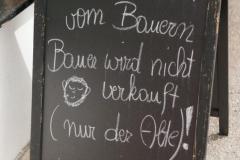 vom Bauern
Bauer wird nicht
verkauft
(nur der Alte)!